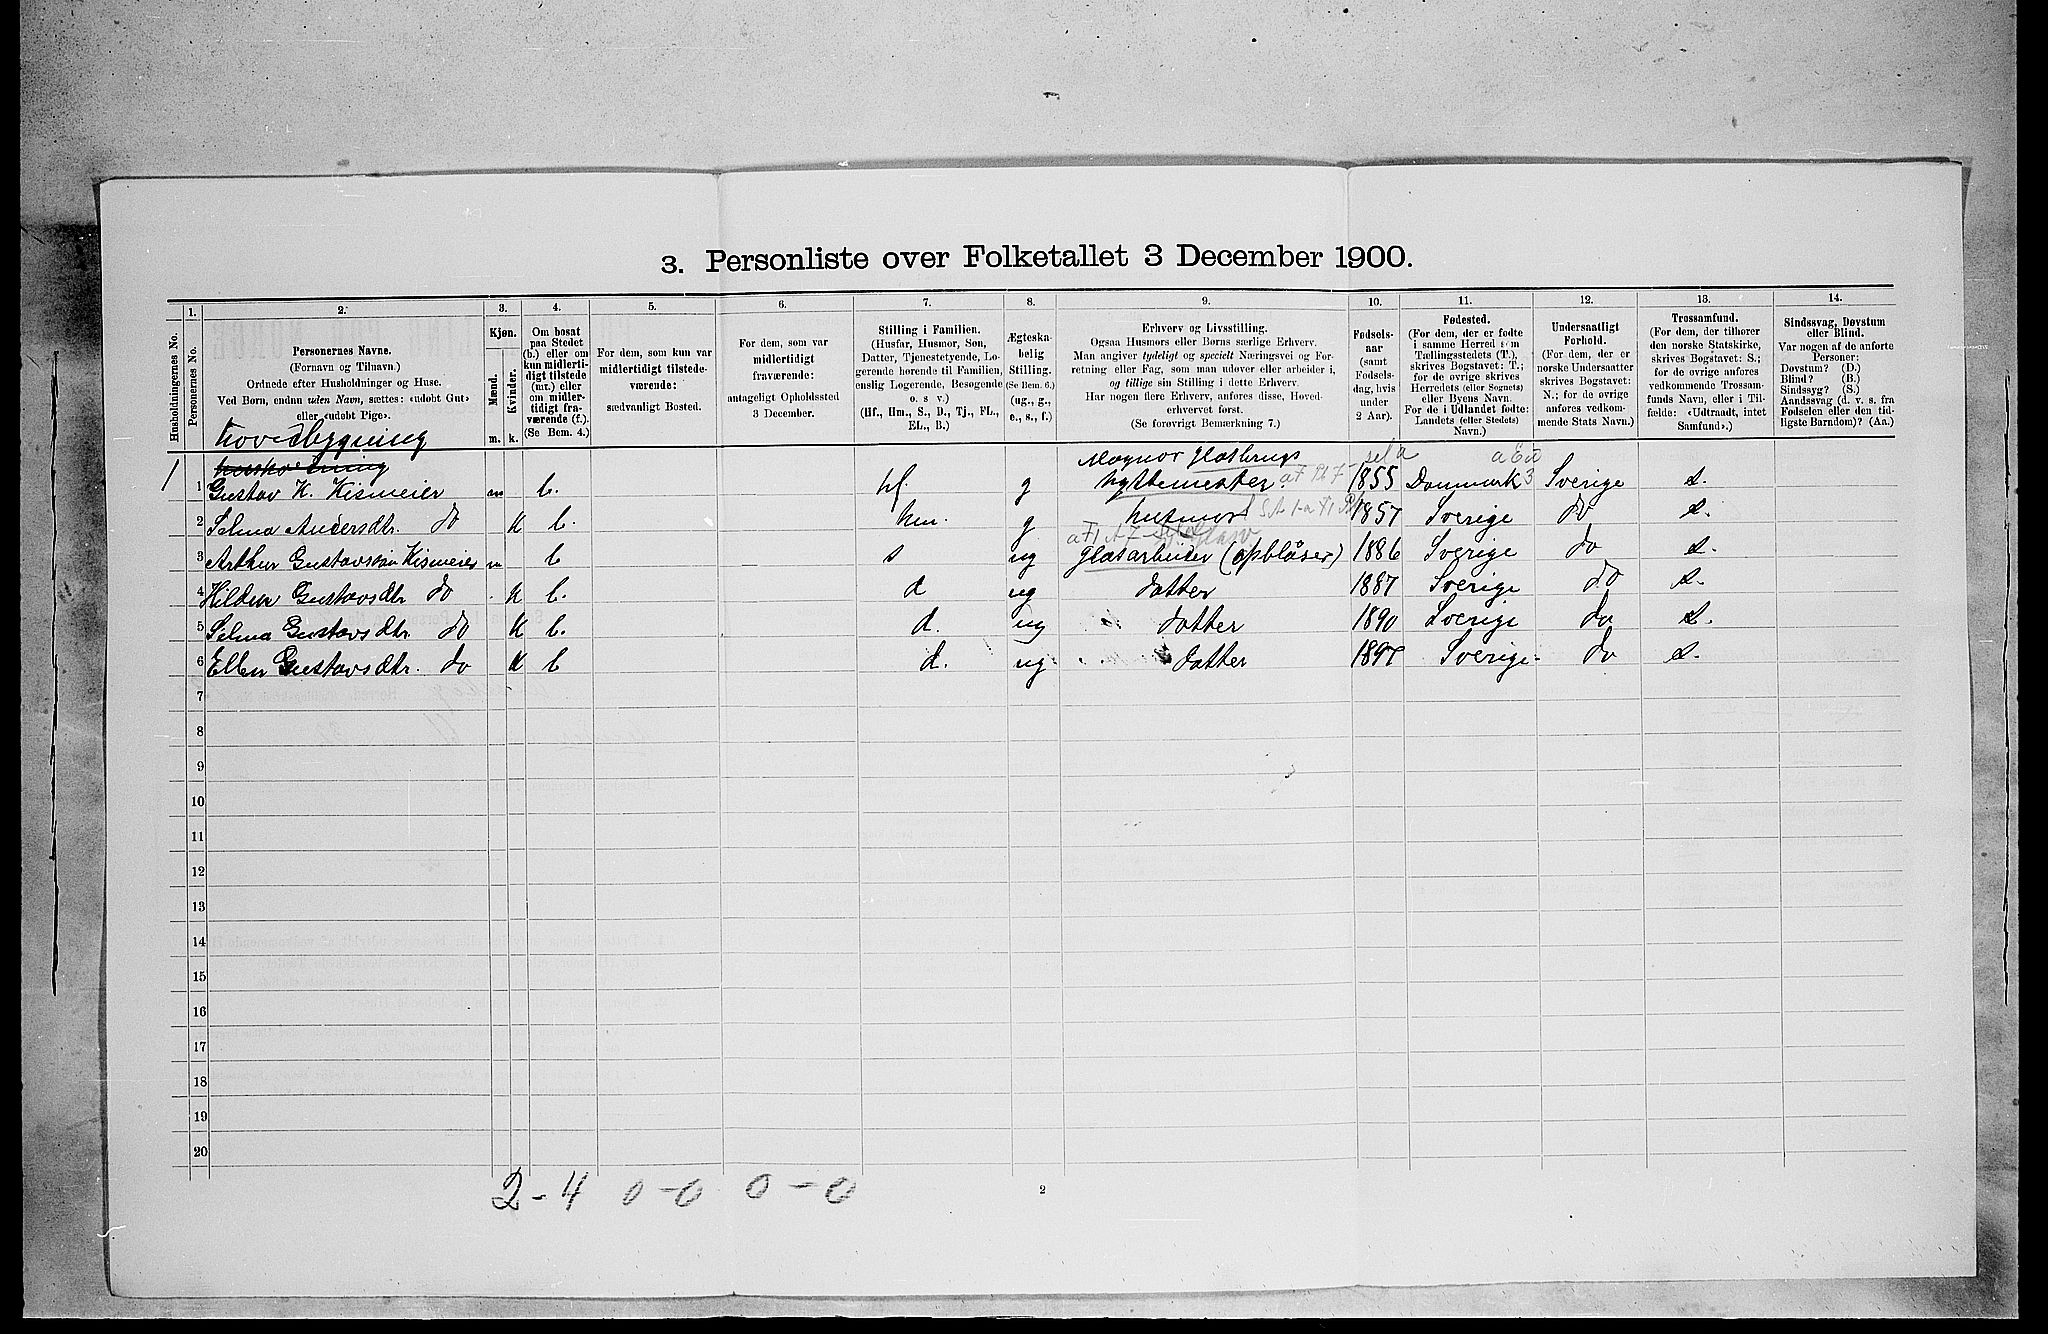 3. Personliste over Folketallet 3 December 1900.
1. 2. 3. 4. 5. 6. 7. 8. 9. 10. 11. 12. 13. 14.
Husholdningernes No.
Personernes No.
Personernes Navne.
(Fornavn og Tilnavn.)
Ordnede efter Husholdninger og Huse.
Ved Børn, endnu uden Navn, sættes: «udøbt Gut»
eller «udøbt Pige».
Kjøn.
Mænd.
Kvinder.
m. k.
Om bosat
paa Stedet
(b.) eller om
kun midlerti-
digt tilstede
(mt.) eller
om midler-
tidigt fra-
værende (f.).
(Se Bem. 4.)
For dem, som kun var
midlertidigt tilstede-
værende:
sædvanligt Bosted.
For dem, som var
midlertidigt
fraværende:
antageligt Opholdssted
3 December.
Stilling i Familien.
(Husfar, Husmor, Søn,
Datter, Tjenestetyende, Lo-
gerende hørende til Familien,
enslig Logerende, Besøgende
o. s. v.)
(Hf., Hm., S., D., Tj., FL.,
EL., B.)
Ægteska-
belig
Stilling.
(Se Bem. 6.)
(ug., g.,
e., s., f.)
Erhverv og Livsstilling.
Ogsaa Husmors eller Børns særlige Erhverv.
Man angiver tydeligt og specielt Næringsvei og For-
retning eller Fag, som man udøver eller arbeider i,
og tillige sin Stilling i dette Erhverv.
Har nogen flere Erhverv, anføres disse, Hoved-
erhvervet først.
(Se forøvrigt Bemærkning 7.)
Fødsels-
aar
(samt
Fødsels-
dag, hvis
under
2 Aar).
Fødested.
(For dem, der er fødte
i samme Herred som
Tællingsstedets (T.),
skrives Bogstavet: T.;
for de øvrige skrives
Herredets (eller Sognets)
eller Byens Navn.
For de i Udlandet fødte:
Landets (eller Stedets)
Navn.)
Undersaatligt
Forhold.
(For dem, der er
norske Undersaatter
skrives Bogstavet:
N.; for de øvrige
anføres vedkom-
mende Stats Navn.)
Trossamfund.
(For dem, der tilhører
den norske Statskirke,
skrives Bogstavet: S.;
for de øvrige anføres
vedkommende Trossam-
funds Navn, eller i Til-
fælde: «Udtraadt, intet
Samfund».)
Sindssvag, Døvstum
eller Blind.
Var nogen af de anførte
Personer:
Døvstum? (D.)
Blind? (B.)
Sindssyg? (S.)
Aandssvag (d. v. s. fra
Fødselen eller den tid-
ligste Barndom)? (Aa.)
hovedbygning
1 Magnor glasbrugs
1 Gustav K. Kismeier m b. hf. g hyttemester. 1855 Danmark Sverige s.
2 Selma Andersdtr. do k b. hm. g husmor 1857 Sverige do s.
3 Arthur Gustavsøn Kismeier m b s ug glasarbeider (opblåser) 1886 Sverige do s.
4 Hildur Gustavsdtr do k b. d ug datter 1887 Sverige do s.
5 Selma Gustavsdtr. do k b. d. ug datter 1890 Sverige do s.
6 Ellen Gustavsdtr. do k b d. ug datter 1897 Sverige do s.
7
8
9
10
11
12
13
14
15
16
17
18
19
20
2 - 4 0 - 0 0 - 0
2